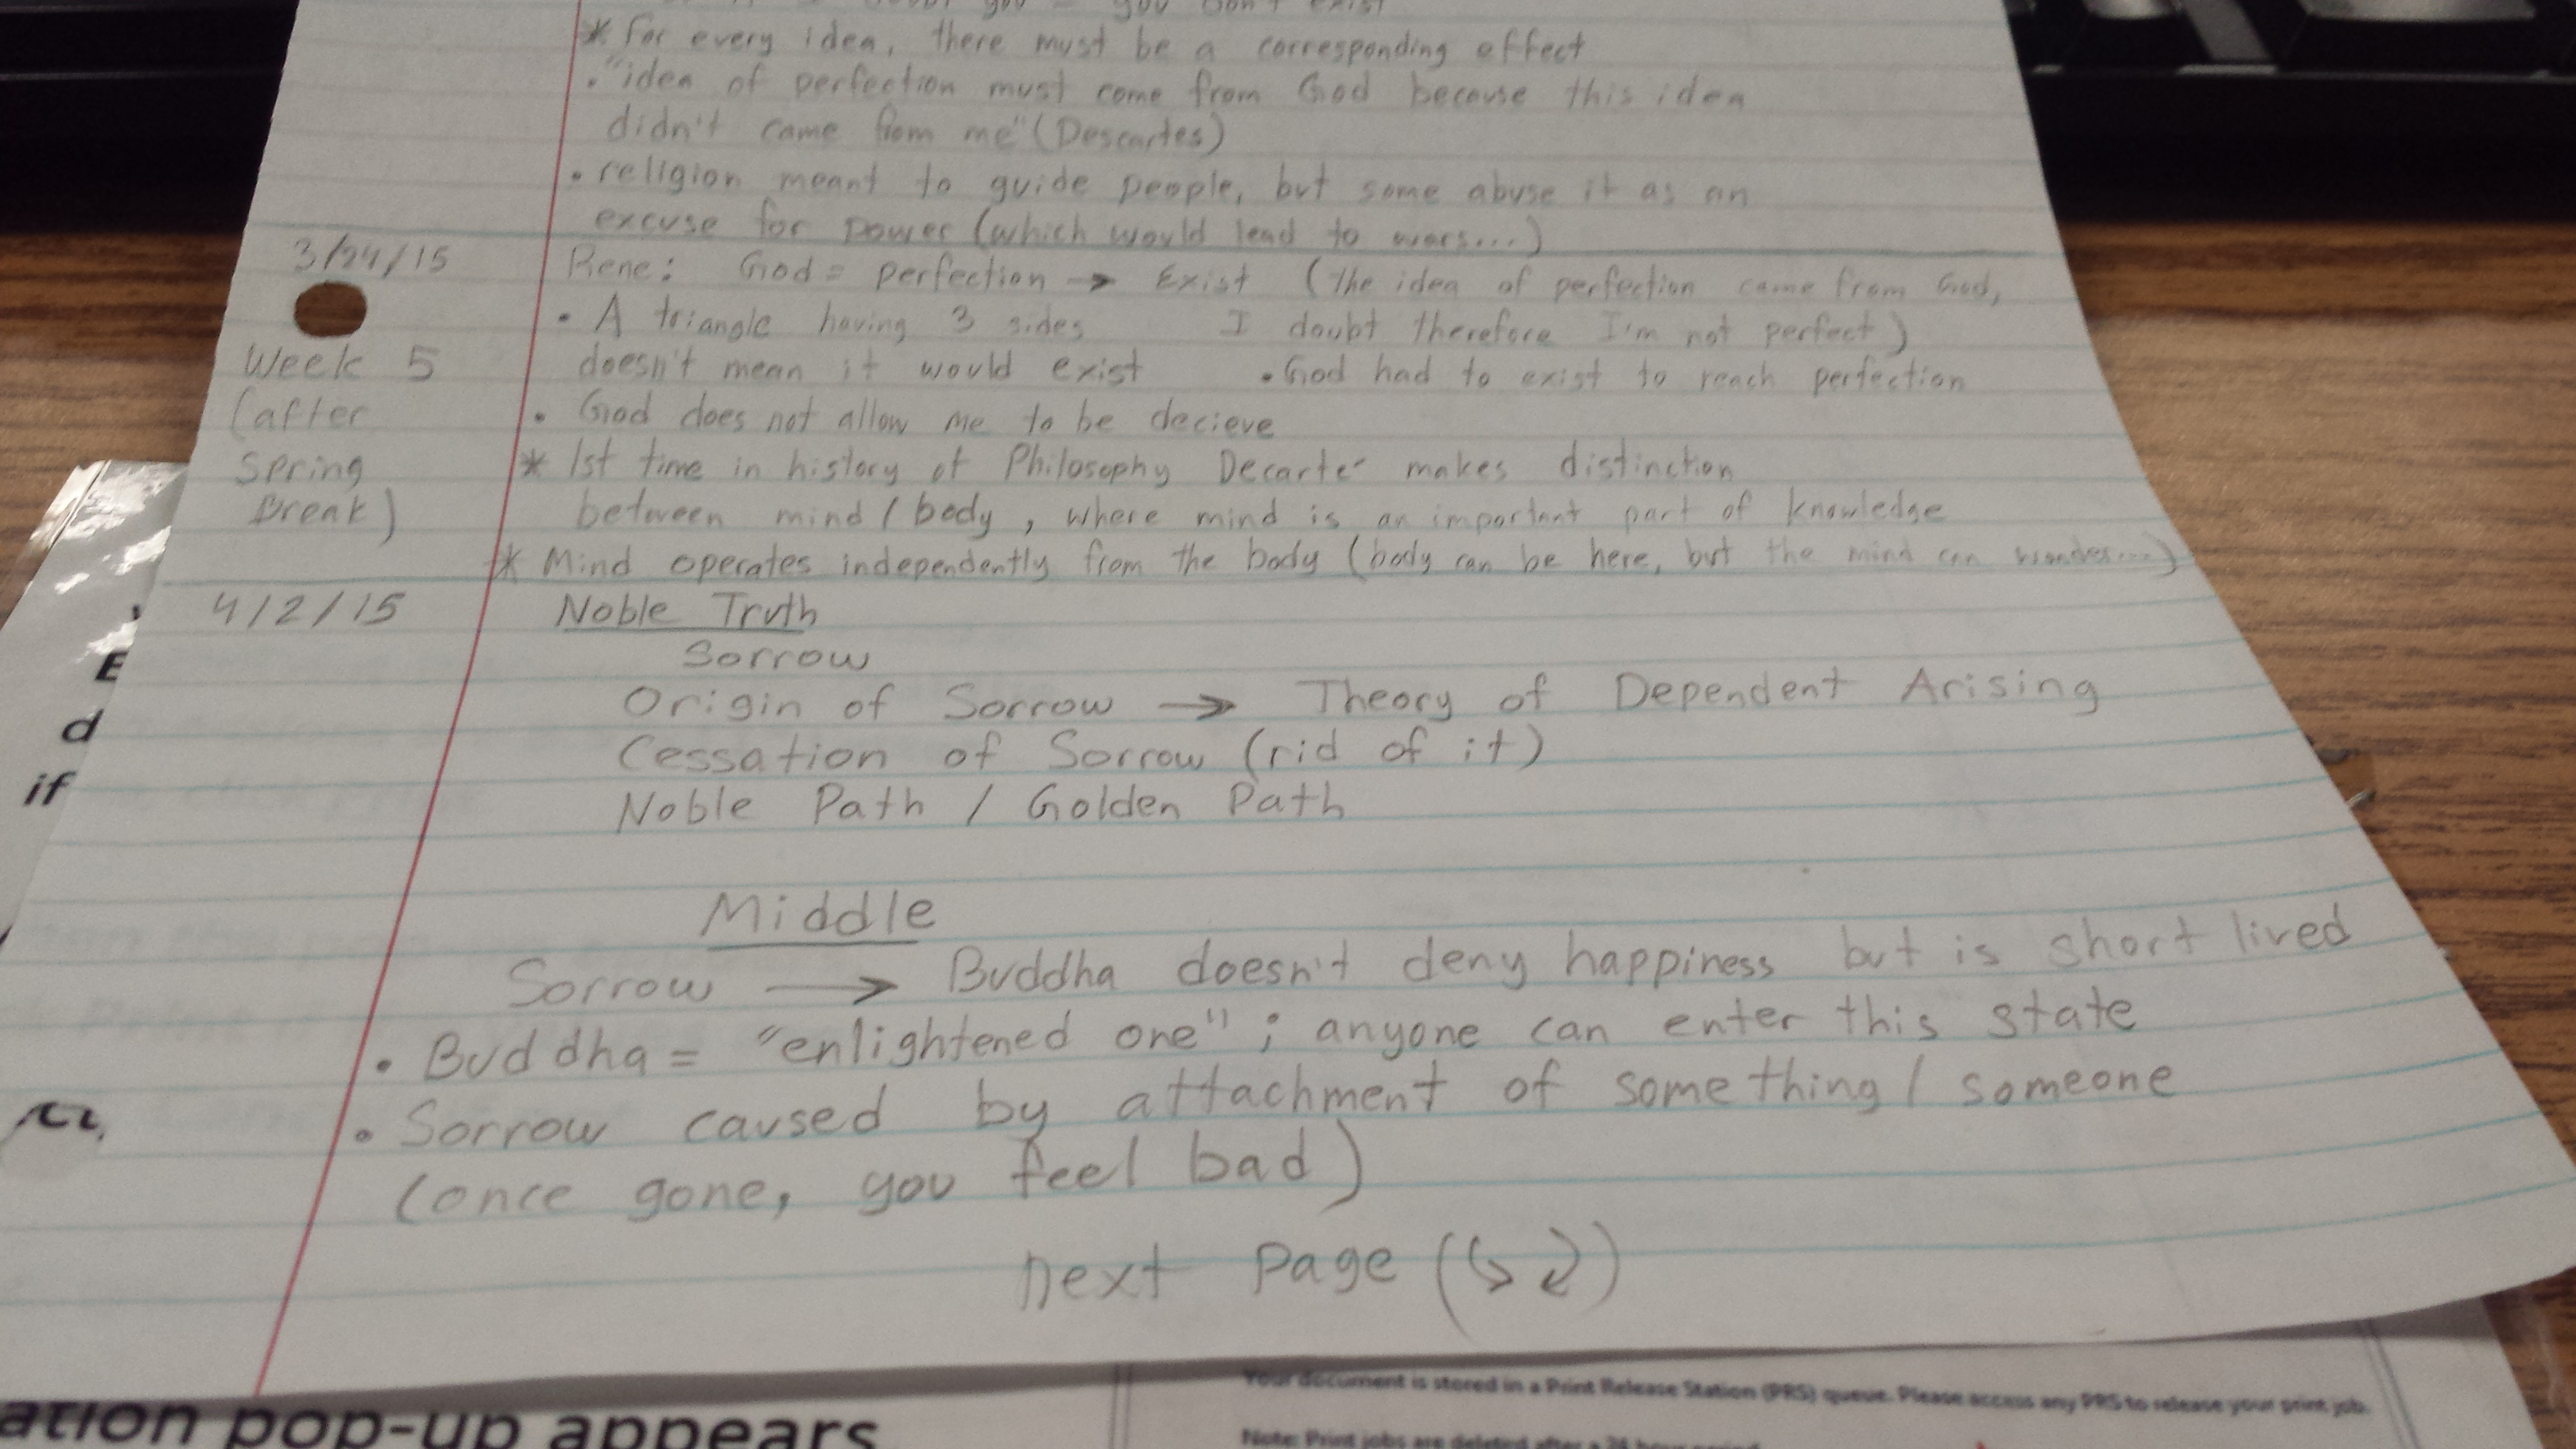 you = you don't exist
* For every idea, there must be a corresponding effect
. "idea of perfection must come from God because this idea
didn't came from me" (Descartes)
• religion meant to guide people, but some abuse it as an
excuse for power (which would lead to wars...)
3/24/15 Rene: God = perfection → Exist (the idea of perfection came from God,
• A triangle having 3 sides I doubt therefore I'm not perfect)
Week 5 doesn't mean it would exist • God had to exist to reach perfection
(after • God does not allow me to be decieve
Spring * 1st time in history of Philosophy Decarte makes distinction
Break) between mind / body, where mind is an important part of knowledge
* Mind operates independently from the body (body can be here, but the mind can wonder...)
4/2/15 Noble Truth
Sorrow
Origin of Sorrow → Theory of Dependent Arising
Cessation of Sorrow (rid of it)
Noble Path / Golden Path
Middle
Sorrow → Buddha doesn't deny happiness but is short lived
• Buddha = "enlightened one"; anyone can enter this state
• Sorrow caused by attachment of something / someone
(once gone, you feel bad)
next page (↳ ↲)
E
d
if
ation pop-up appears
Your document is stored in a Print Release Station (PRS) queue. Please access any PRS to release your print job.
Note: Print jobs are deleted after a 24 hour period